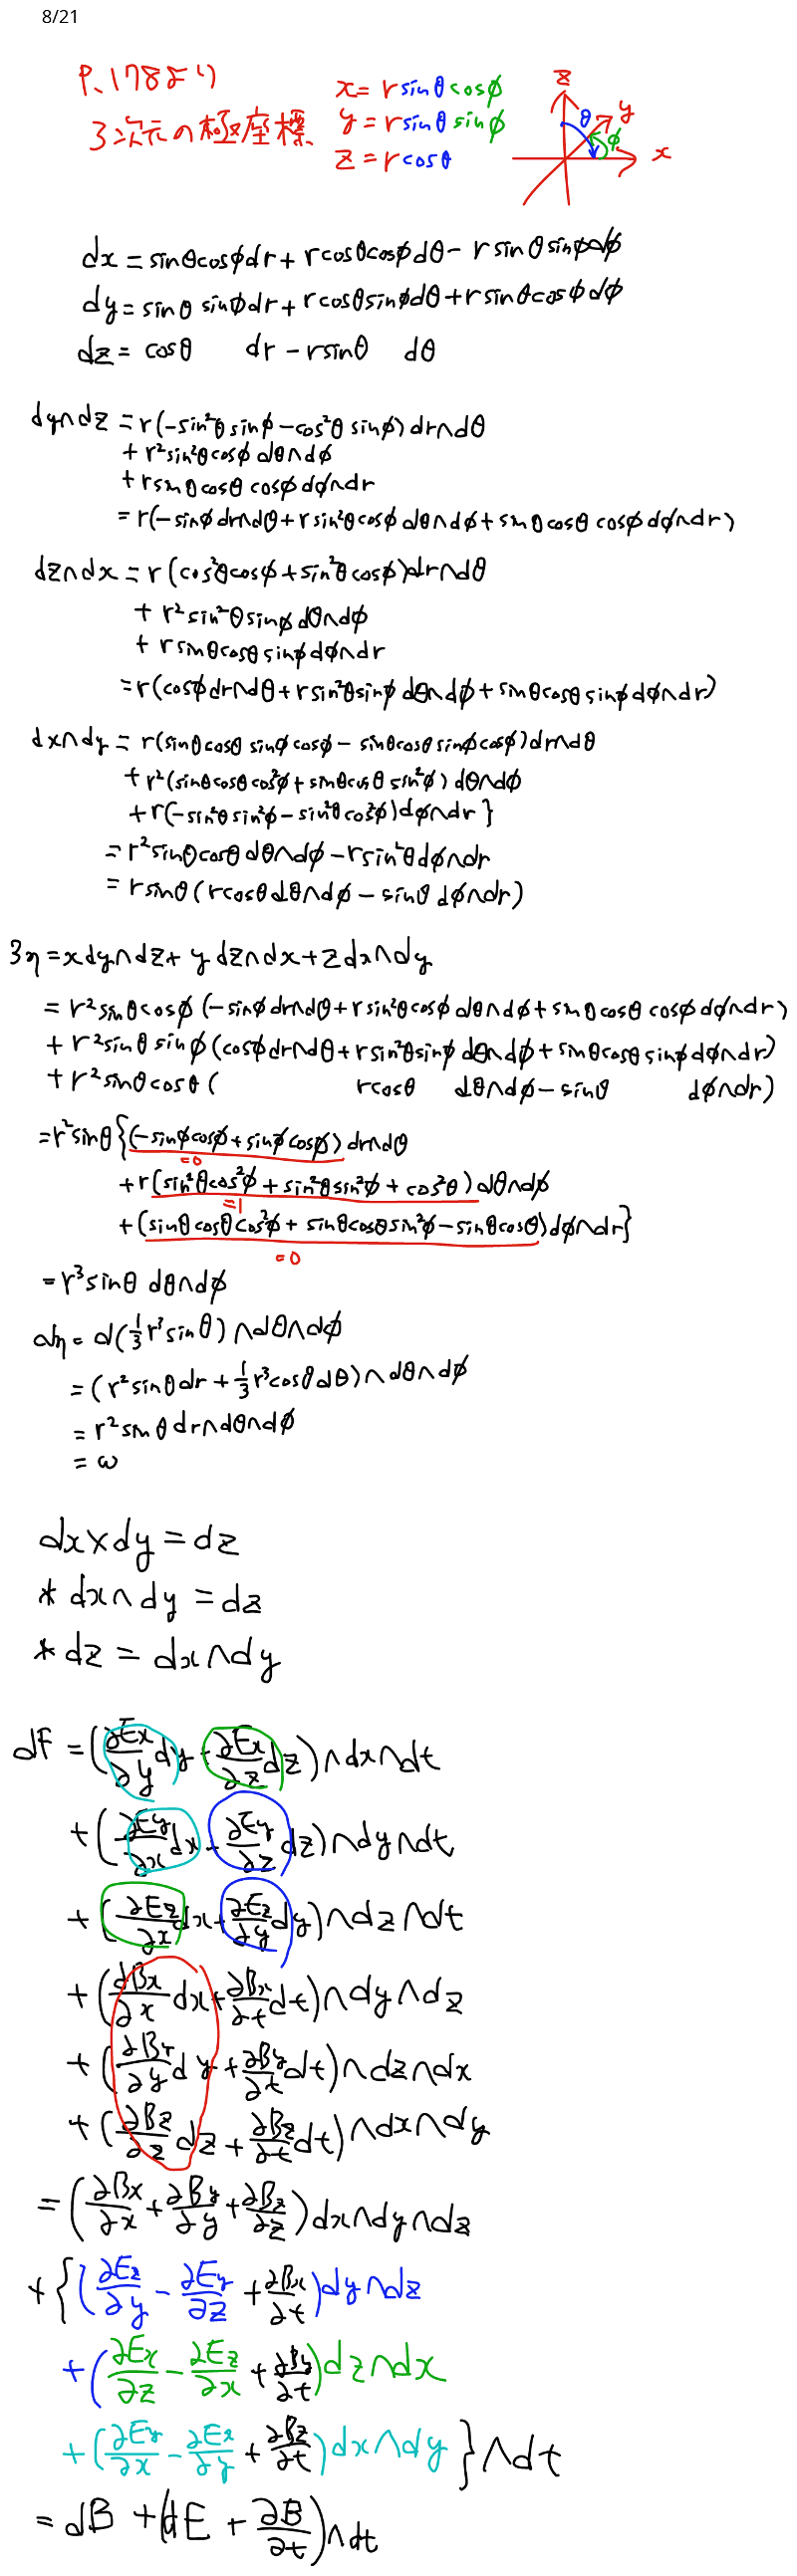 8/21
P.178より
3次元の極座標
x = r sinθ cosϕ
y = r sinθ sinϕ
z = r cosθ
z
y
θ
ϕ
x
dx = sinθcosϕdr + rcosθcosϕdθ − r sinθ sinϕdϕ
dy = sinθ sinϕdr + rcosθsinϕdθ + r sinθcosϕdϕ
dz = cosθ dr − rsinθ dθ
dy∧dz = r(−sin²θ sinϕ − cos²θ sinϕ) dr∧dθ
+ r²sin²θcosϕ dθ∧dϕ
+ rsinθcosθ cosϕ dϕ∧dr
= r(−sinϕ dr∧dθ + r sin²θcosϕ dθ∧dϕ + sinθcosθ cosϕ dϕ∧dr)
dz∧dx = r(cos²θcosϕ + sin²θ cosϕ)dr∧dθ
+ r² sin²θ sinϕ dθ∧dϕ
+ r sinθcosθ sinϕ dϕ∧dr
= r(cosϕ dr∧dθ + r sin²θsinϕ dθ∧dϕ + sinθcosθ sinϕ dϕ∧dr)
dx∧dy = r(sinθcosθ sinϕcosϕ − sinθcosθ sinϕcosϕ)dr∧dθ
+ r²(sinθcosθ cos²ϕ + sinθcosθ sin²ϕ) dθ∧dϕ
+ r(−sin²θ sin²ϕ − sin²θ cos²ϕ)dϕ∧dr}
= r²sinθcosθ dθ∧dϕ − r sin²θ dϕ∧dr
= r sinθ(rcosθ dθ∧dϕ − sinθ dϕ∧dr)
3η = xdy∧dz + y dz∧dx + z dx∧dy
= r²sinθcosϕ(−sinϕ dr∧dθ + r sin²θcosϕ dθ∧dϕ + sinθcosθ cosϕ dϕ∧dr)
+ r²sinθ sinϕ(cosϕ dr∧dθ + r sin²θsinϕ dθ∧dϕ + sinθcosθ sinϕ dϕ∧dr)
+ r²sinθcosθ( rcosθ dθ∧dϕ − sinθ dϕ∧dr)
= r²sinθ{(−sinϕcosϕ + sinϕcosϕ) dr∧dθ
=0
+ r(sin²θcos²ϕ + sin²θsin²ϕ + cos²θ) dθ∧dϕ
=1
+ (sinθcosθcos²ϕ + sinθcosθsin²ϕ − sinθcosθ)dϕ∧dr}
=0
= r³sinθ dθ∧dϕ
dη = d(1/3 r³sinθ)∧dθ∧dϕ
= (r²sinθdr + 1/3 r³cosθdθ)∧dθ∧dϕ
= r²sinθdr∧dθ∧dϕ
= ω
dx×dy = dz
* dx∧dy = dz
* dz = dx∧dy
dF = (∂Ex/∂y dy + ∂Ex/∂z dz)∧dx∧dt
+ (∂Ey/∂x dx + ∂Ey/∂z dz)∧dy∧dt
+ (∂Ez/∂x dx + ∂Ez/∂y dy)∧dz∧dt
+ (∂Bx/∂x dx + ∂Bx/∂t dt)∧dy∧dz
+ (∂By/∂y dy + ∂By/∂t dt)∧dz∧dx
+ (∂Bz/∂z dz + ∂Bz/∂t dt)∧dx∧dy
= (∂Bx/∂x + ∂By/∂y + ∂Bz/∂z)dx∧dy∧dz
+ {(∂Ez/∂y − ∂Ey/∂z + ∂Bx/∂t)dy∧dz
+ (∂Ex/∂z − ∂Ez/∂x + ∂By/∂t)dz∧dx
+ (∂Ey/∂x − ∂Ex/∂y + ∂Bz/∂t)dx∧dy}∧dt
= dB + (dE + ∂B/∂t)∧dt